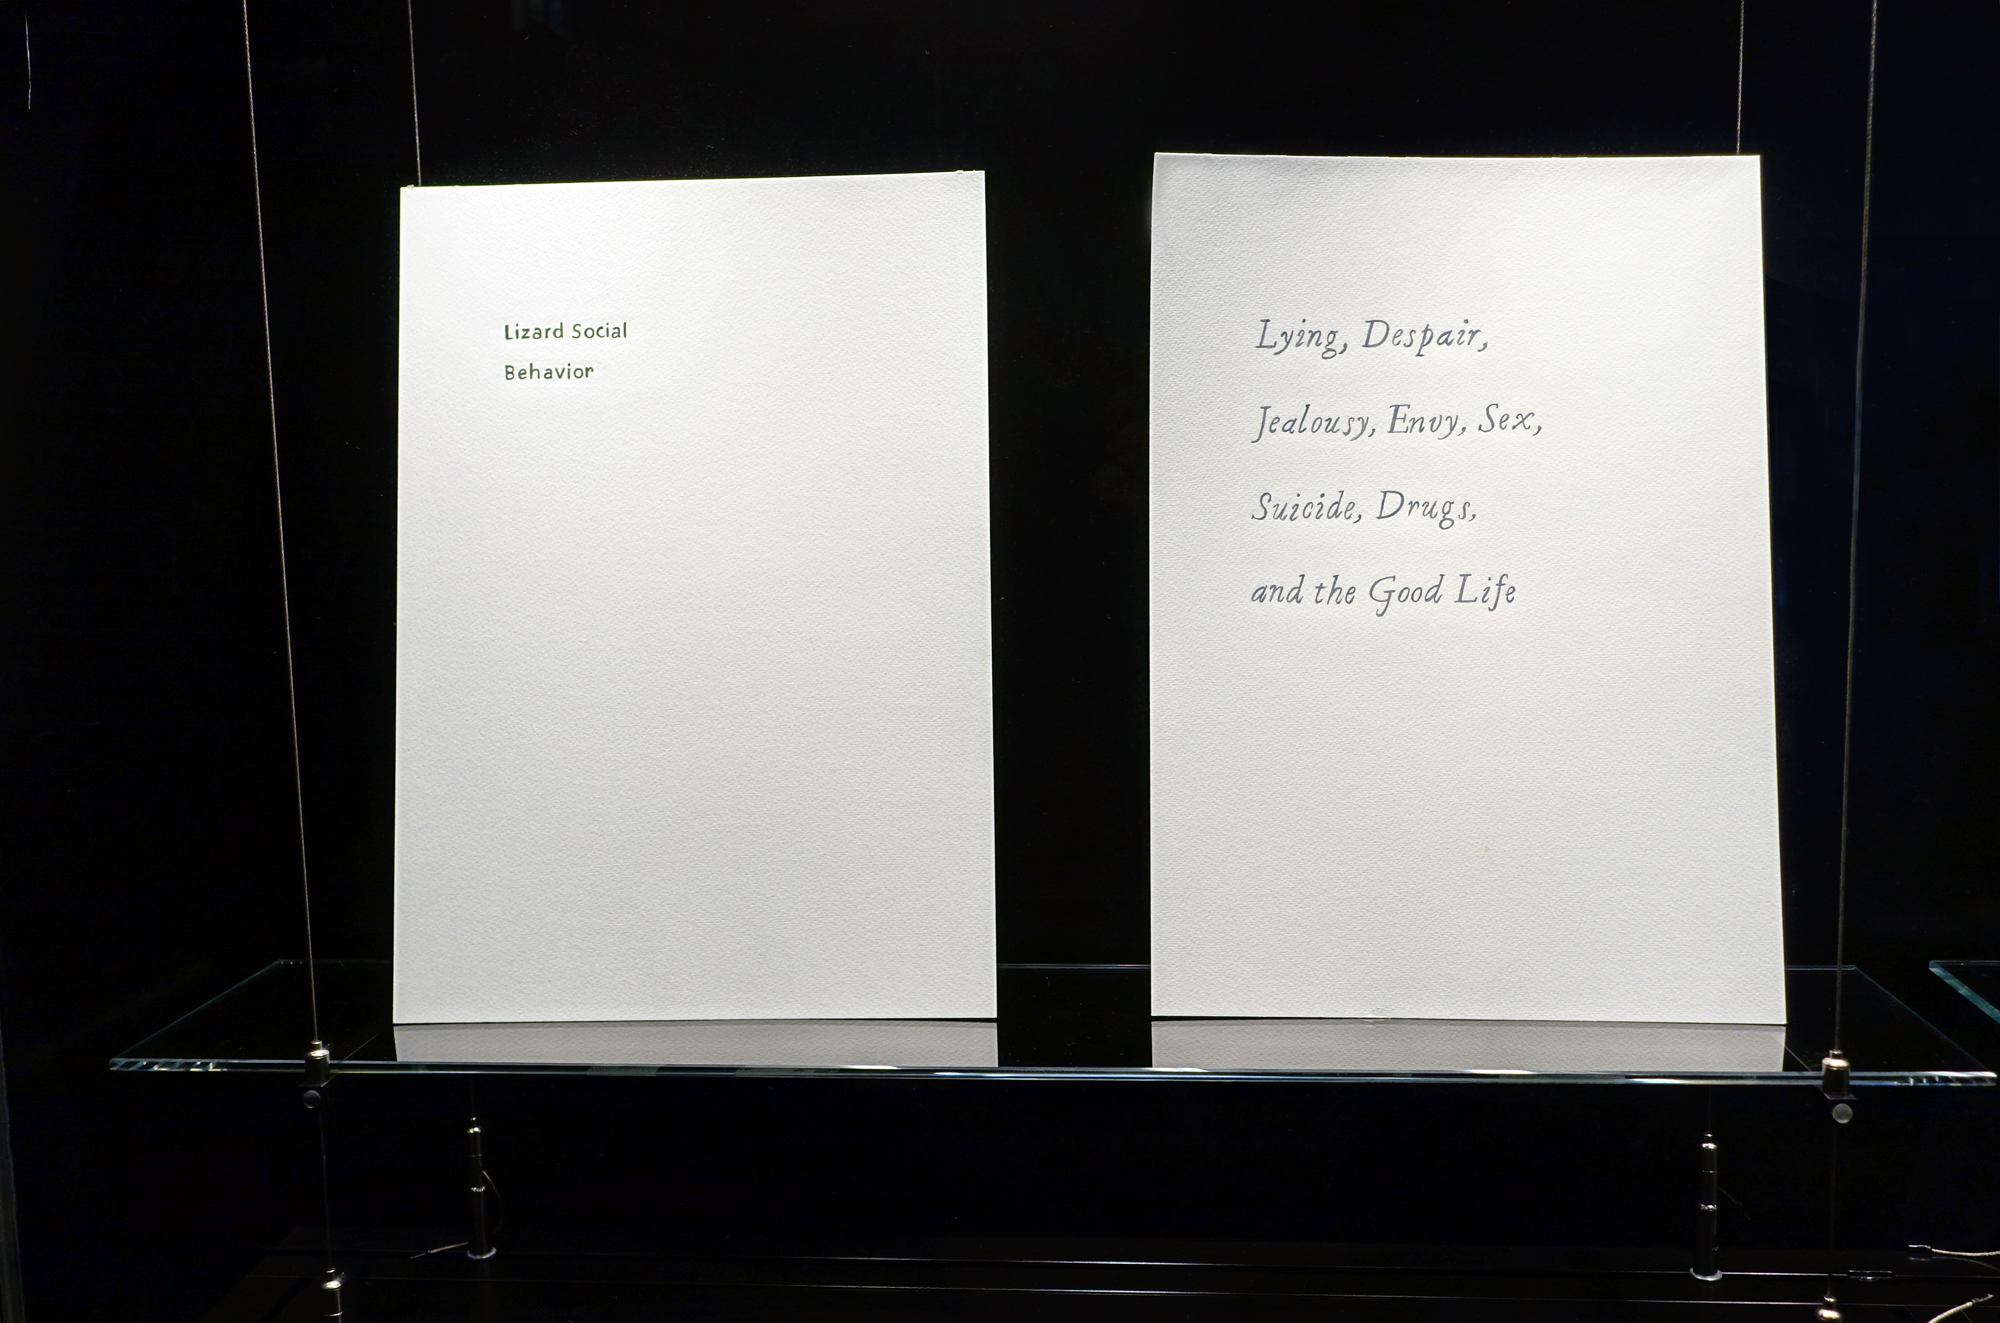 Lizard Social
Behavior
Lying, Despair,
Jealousy, Envy, Sex,
Suicide, Drugs,
and the Good Life